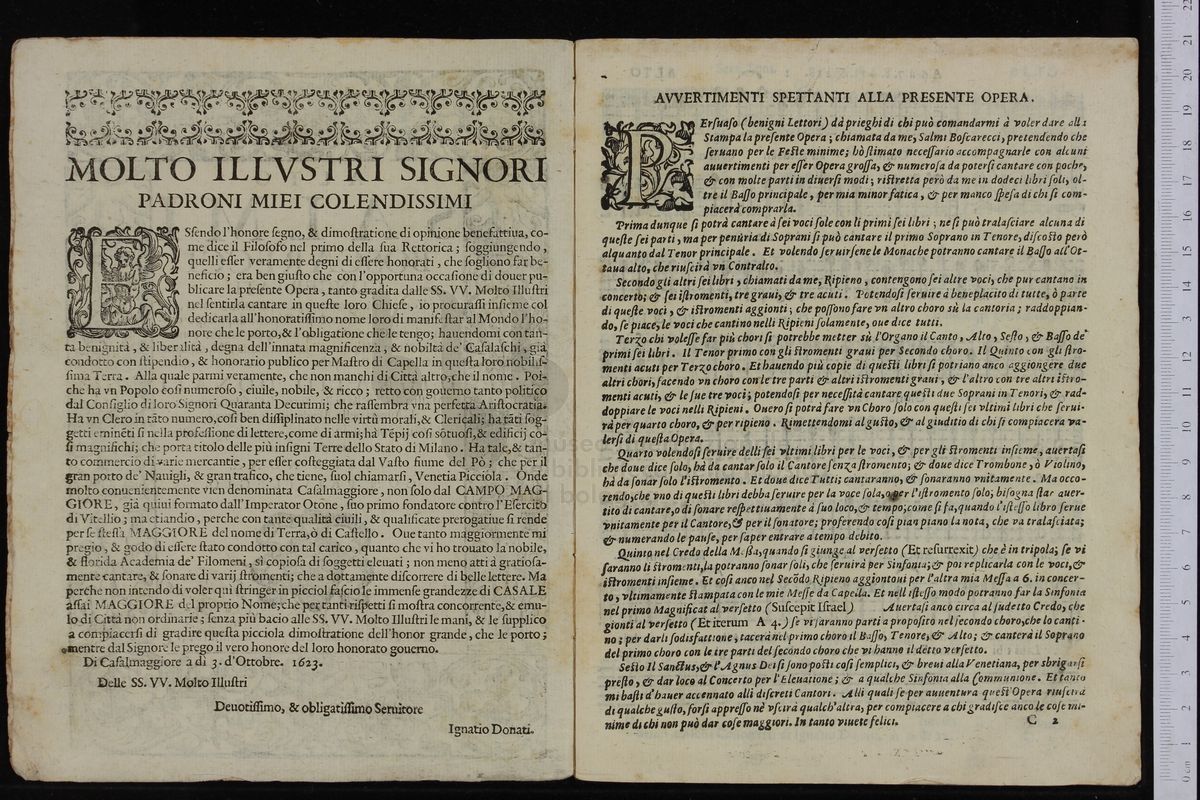 MOLTO ILLVSTRI SIGNORI
PADRONI MIEI COLENDISSIMI
ESsendo l'honore segno, & dimostratione di opinione benefattiua, co-
me dice il Filosofo nel primo della sua Rettorica; soggiungendo,
quelli esser veramente degni di essere honorati, che sogliono far be-
neficio; era ben giusto che con l'opportuna occasione di douer pu-
blicare la presente Opera, tanto gradita dalle SS. VV. Molto Illustri
nel sentirla cantare in queste loro Chiese, io procurassi insieme col
dedicarla all'honoratissimo nome loro di manifestar al Mondo l'ho-
nore che le porto, & l'obligatione che le tengo; hauendomi con tan-
ta benignità, & liberalità, degna dell'innata magnificenza, & nobiltà de' Casalaschi, già
condotto con stipendio, & honorario publico per Mastro di Capella in questa loro nobilis-
sima Terra. Alla quale parmi veramente, che non manchi di Città altro, che il nome. Poi-
che ha vn Popolo così numeroso, ciuile, nobile, & ricco; retto con gouerno tanto politico
dal Consiglio di loro Signori Quaranta Decurimi; che rassembra vna perfetta Aristocratia.
Ha vn Clero in tãto numero, così ben dissiplinato nelle virtù morali, & Clericali; ha tãti sog-
getti eminẽti sì nella professione di lettere, come di armi; hà Tẽpij così sõtuosi, & edificij co-
sì magnifichi; che porta titolo delle più insigni Terre dello Stato di Milano. Ha tale, & tan-
to commercio di varie mercantie, per esser costeggiata dal Vasto fiume del Pò; che per il
gran porto de' Nauigli, & gran trafico, che tiene, suol chiamarsi, Venetia Picciola. Onde
molto conuenientemente vien denominata Casalmaggiore, non solo dal CAMPO MAG-
GIORE, già quiui formato dall'Imperator Otone, suo primo fondatore contro l'Esercito
di Vitellio; ma etiandio, perche con tante qualità ciuili, & qualificate prerogatiue si rende
per se stessa MAGGIORE del nome di Terra, ò di Castello. Oue tanto maggiormente mi
pregio, & godo di essere stato condotto con tal carico, quanto che vi ho trouato la nobile,
& florida Academia de' Filomeni, sì copiosa di soggetti eleuati; non meno atti à gratiosa-
mente cantare, & sonare di varij stromenti; che a dottamente discorrere di belle lettere. Ma
perche non intendo di voler qui stringer in picciol fascio le immense grandezze di CASALE
assai MAGGIORE del proprio Nome; che per tanti rispetti si mostra concorrente, & emu-
lo di Città non ordinarie; senza più bacio alle SS. VV. Molto Illustri le mani, & le supplico
a compiacersi di gradire questa picciola dimostratione dell'honor grande, che le porto;
mentre dal Signore le prego il vero honore del loro honorato gouerno.
Di Casalmaggiore a dì 3. d'Ottobre. 1623.
Delle SS. VV. Molto Illustri
Deuotissimo, & obligatissimo Seruitore
Ignatio Donati.
AVVERTIMENTI SPETTANTI ALLA PRESENTE OPERA.
PErsuaso (benigni Lettori) dà prieghi di chi può comandarmi à voler dare alla
Stampa la presente Opera; chiamata da me, Salmi Boscarecci, pretendendo che
seruano per le Feste minime; hò stimato necessario accompagnarle con alcuni
auuertimenti per esser Opera grossa, & numerosa da potersi cantare con poche,
& con molte parti in diuersi modi; ristretta però da me in dodeci libri soli, ol-
tre il Basso principale, per mia minor fatica, & per manco spesa di chi si com-
piacerà comprarla.
Prima dunque si potrà cantare à sei voci sole con li primi sei libri; ne si può tralasciare alcuna di
queste sei parti, ma per penuria di Soprani si può cantare il primo Soprano in Tenore, discosto però
alquanto dal Tenor principale. Et volendo seruirsene le Monache potranno cantare il Basso all'Ot-
taua alto, che riuscirà vn Contralto.
Secondo gli altri sei libri, chiamati da me, Ripieno, contengono sei altre voci, che pur cantano in
concerto; & sei istromenti, tre graui, & tre acuti. Potendosi seruire à beneplacito di tutte, ò parte
di queste voci, & istromenti aggionti; che possono fare vn altro choro sù la cantoria; raddoppian-
do, se piace, le voci che cantino nelli Ripieni solamente, oue dice tutti.
Terzo chi volesse far più chori si potrebbe metter sù l'Organo il Canto, Alto, Sesto, & Basso de'
primi sei libri. Il Tenor primo con gli stromenti graui per Secondo choro. Il Quinto con gli stro-
menti acuti per Terzo choro. Et hauendo più copie di questi libri si potriano anco aggiongere due
altri chori, facendo vn choro con le tre parti & altri istromenti graui, & l'altro con tre altri istro-
menti acuti, & le sue tre voci; potendosi per necessità cantare questi due Soprani in Tenori, & rad-
doppiare le voci nelli Ripieni. Ouero si potrà fare vn Choro solo con questi sei vltimi libri che serui-
rà per quarto choro, & per ripieno. Rimettendomi al gusto, & al giuditio di chi si compiacerà va-
lersi di questa Opera.
Quarto volendosi seruire delli sei vltimi libri per le voci, & per gli stromenti insieme, auertasi
che doue dice solo, hà da cantar solo il Cantore senza stromento; & doue dice Trombone, ò Violino,
hà da sonar solo l'istromento. Et doue dice Tutti; cantaranno, & sonaranno vnitamente. Ma occo-
rendo, che vno di questi libri debba seruire per la voce sola, o per l'istromento solo; bisogna star auer-
tito di cantare, o di sonare respettiuamente à suo loco, & tempo; come si fa, quando l'istesso libro serue
vnitamente per il Cantore, & per il sonatore; proferendo così pian piano la nota, che va tralasciata;
& numerando le pause, per saper entrare a tempo debito.
Quinto nel Credo della Messa, quando si giunge al versetto (Et resurrexit) che è in tripola; se vi
saranno li stromenti, la potranno sonar soli, che seruirà per Sinfonia; & poi replicarla con le voci, &
istromenti insieme. Et così anco nel Secõdo Ripieno aggiontoui per l'altra mia Messa a 6. in concer-
to, vltimamente stampata con le mie Messe da Capella. Et nell istesso modo potranno far la Sinfonia
nel primo Magnificat al versetto (Suscepit Israel) Auertasi anco circa al sudetto Credo, che
gionti al versetto (Et iterum A 4.) se vi saranno parti a proposito nel secondo choro, che lo canti-
no; per darli sodisfattione, tacerà nel primo choro il Basso, Tenore, & Alto; & canterà il Soprano
del primo choro con le tre parti del secondo choro che vi hanno il detto versetto.
Sesto Il Sanctus, & l'Agnus Dei si sono posti così semplici, & breui alla Venetiana, per sbrigarsi
presto, & dar loco al Concerto per l'Eleuatione; & a qualche Sinfonia alla Communione. Et tanto
mi basti d'hauer accennato alli discreti Cantori. Alli quali se per auuentura quest'Opera riuscirà
di qualche gusto, forsi appresso nè vscirà qualch'altra, per compiacere a chi gradisce anco le cose mi-
nime di chi non può dar cose maggiori. In tanto viuete felici.
C 2